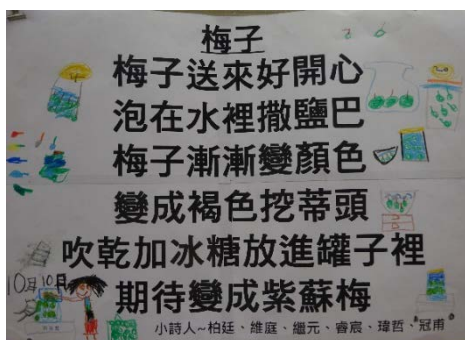 梅子
梅子送來好開心
泡在水裡撒鹽巴
梅子漸漸變顏色
變成褐色挖蒂頭
吹乾加冰糖放進罐子裡
10月10日
期待變成紫蘇梅
小詩人~柏廷、維庭、繼元、睿宸、瑋哲、冠甫